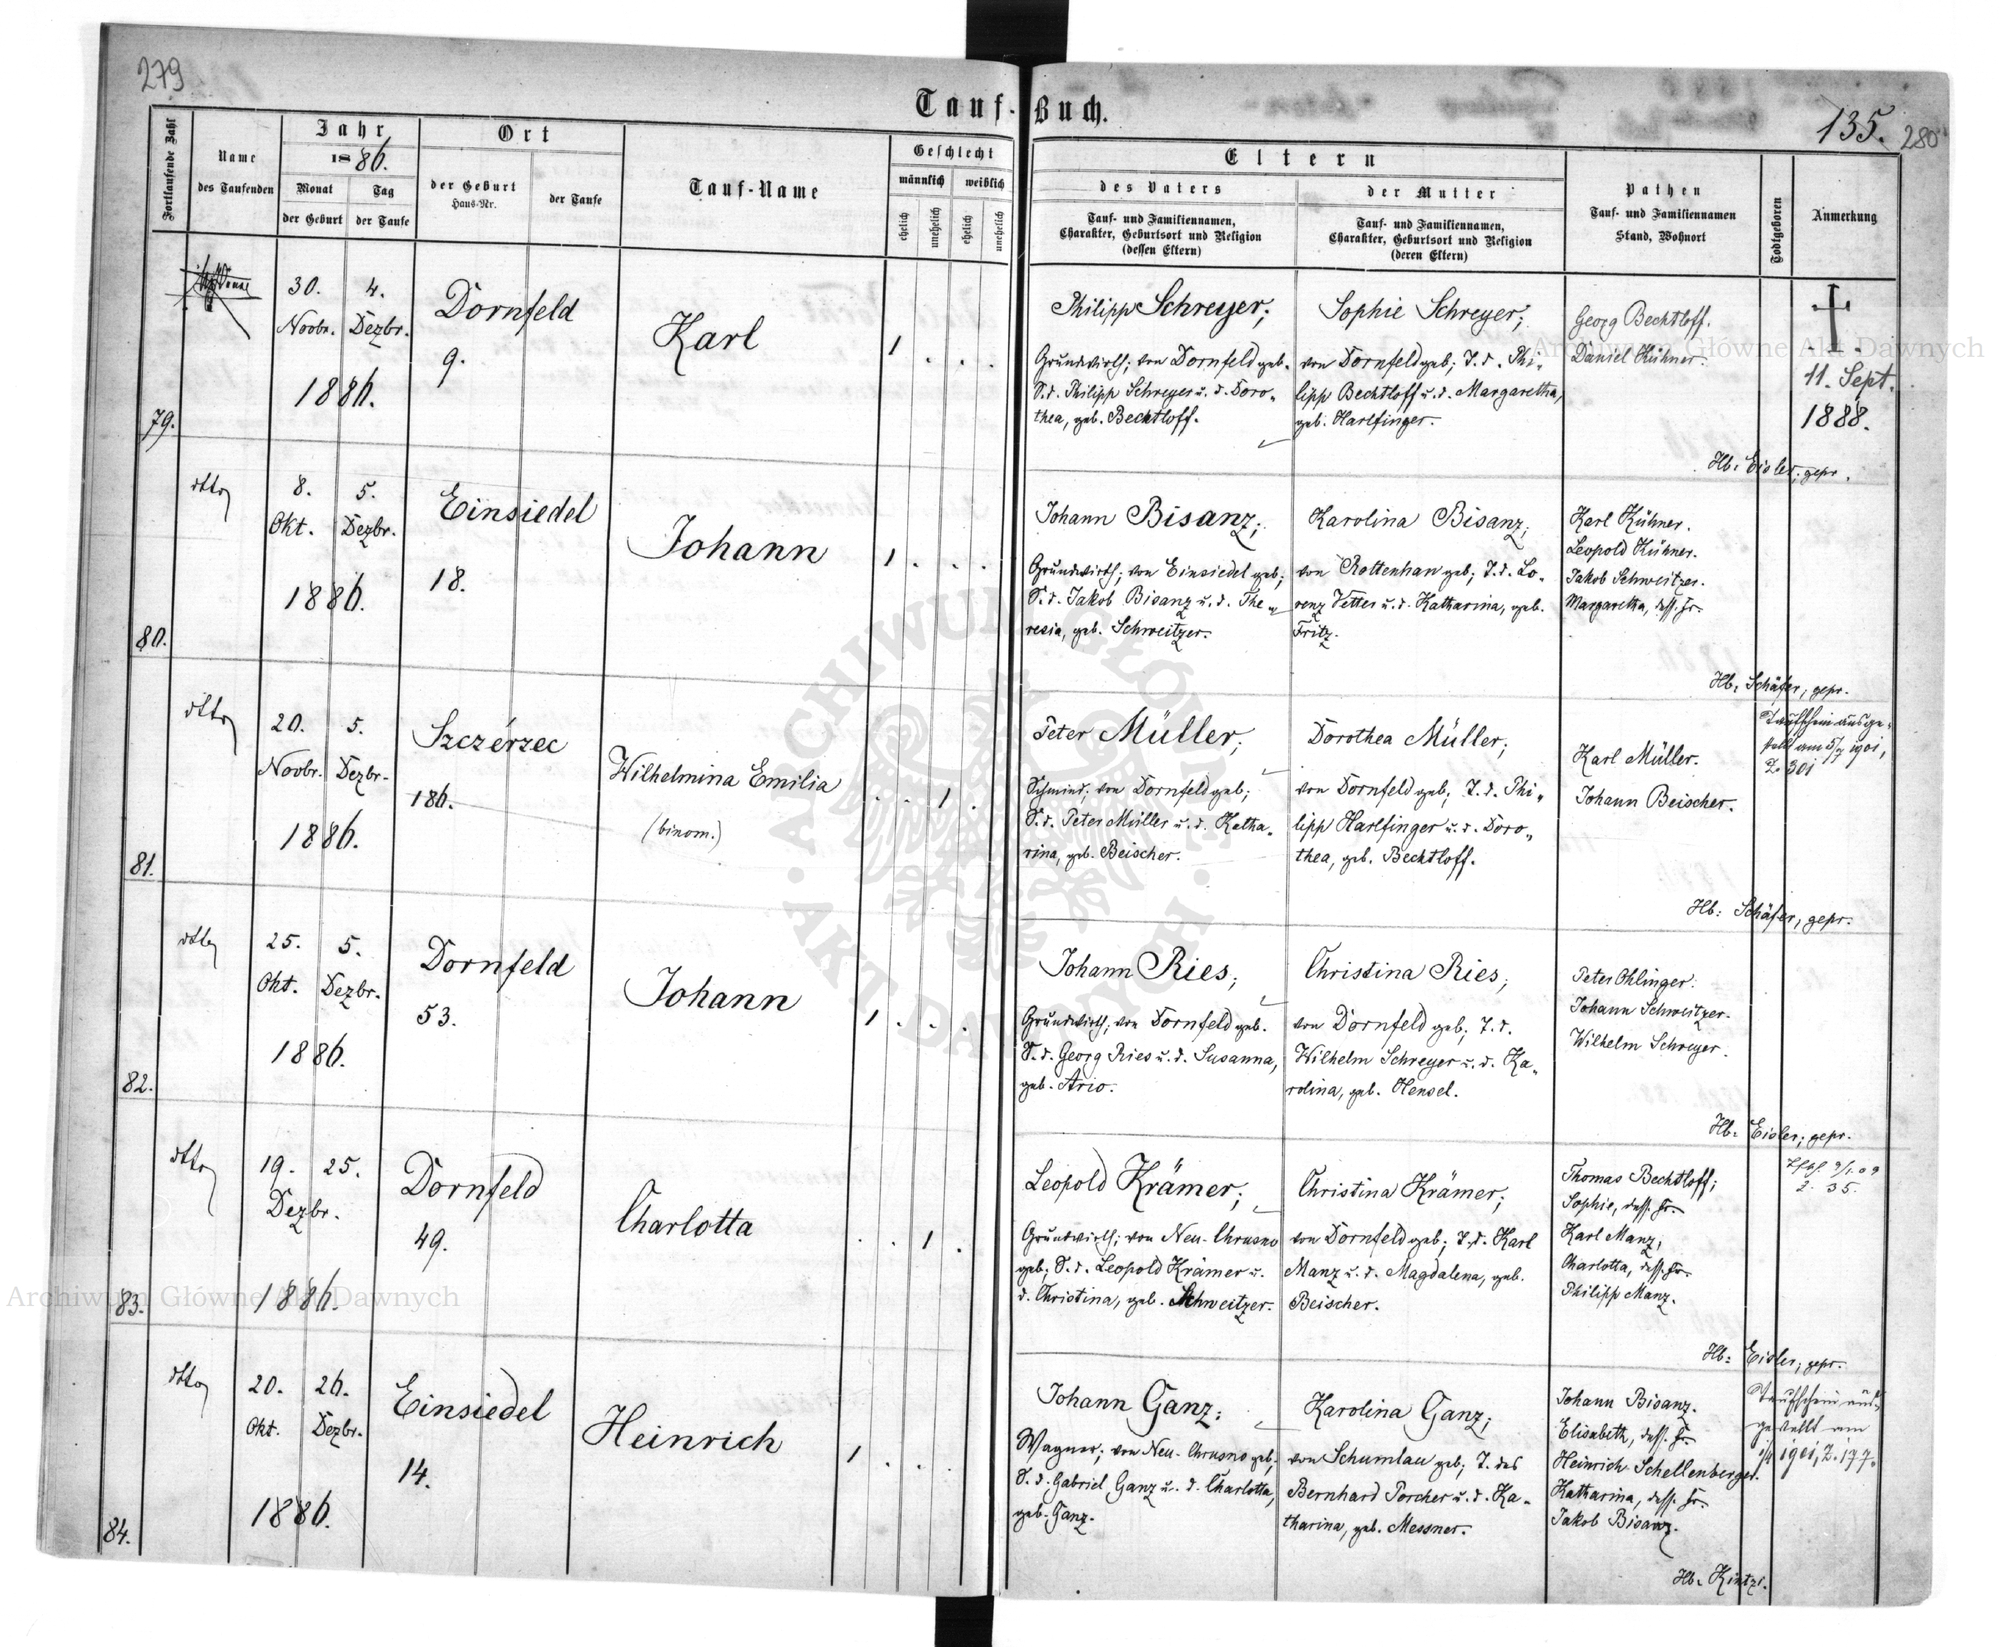 279
Tauf-Buch.
135.
280
Fortlaufende Zahl
Name
des Taufenden
Jahr
1886.
Monat
der Geburt
Tag
der Taufe
Ort
der Geburt
Haus-Nr.
der Taufe
Tauf-Name
Geschlecht
männlich
weiblich
ehelich
unehelich
ehelich
unehelich
Eltern
des Vaters
Tauf- und Familiennamen,
Charakter, Geburtsort und Religion
(dessen Eltern)
der Mutter
Tauf- und Familiennamen,
Charakter, Geburtsort und Religion
(deren Eltern)
Pathen
Tauf- und Familiennamen
Stand, Wohnort
Todtgeboren
Anmerkung
79.
30.
Novbr.
4.
Dezbr.
1886.
Dornfeld
9.
Karl
1 . . .
Philipp Schreyer;
Grundwirth; von Dornfeld geb.
S. d. Philipp Schreyer u. d. Doro-
thea, geb. Bechtloff.
Sophie Schreyer;
von Dornfeld geb; T. d. Phi-
lipp Bechtloff u. d. Margaretha,
geb. Harlfinger.
Georg Bechtloff.
Daniel Kühner.
11. Sept.
1888.
Hb: Eisler; gepr.
80.
dtto
8.
Okt.
5.
Dezbr.
1886.
Einsiedel
18.
Johann
1 . . .
Johann Bisanz;
Grundwirth; von Einsiedel geb;
S. d. Jakob Bisanz u. d. The-
resia, geb. Schweitzer.
Karolina Bisanz;
von Rottenhan geb; T. d. Lo-
renz Vetter u. d. Katharina, geb.
Fritz.
Karl Kühner.
Leopold Kühner.
Jakob Schweitzer.
Margaretha, dess. Fr.
Hb: Schäfer; gepr.
81.
dtto
20.
Novbr.
5.
Dezbr.
1886.
Szczérzec
186.
Wilhelmina Emilia
(binom.)
. . 1 .
Peter Müller;
Schmied; von Dornfeld geb;
S. d. Peter Müller u. d. Katha-
rina, geb. Beischer.
Dorothea Müller;
von Dornfeld geb; T. d. Phi-
lipp Harlfinger u. d. Doro-
thea, geb. Bechtloff.
Karl Müller.
Johann Beischer.
Taufschein ausge-
stellt am 5/7 1901,
Z. 301
Hb: Schäfer; gepr.
82.
dtto
25.
Okt.
5.
Dezbr.
1886.
Dornfeld
53.
Johann
1 . . .
Johann Ries;
Grundwirth; von Dornfeld geb.
S. d. Georg Ries u. d. Susanna,
geb. Ario.
Christina Ries;
von Dornfeld geb; T. d.
Wilhelm Schreyer u. d. Ka-
rolina, geb. Hensel.
Peter Ohlinger.
Johann Schweitzer.
Wilhelm Schreyer.
Hb: Eisler; gepr.
83.
dtto
19.
25.
Dezbr.
1886.
Dornfeld
49.
Charlotta
. . 1 .
Leopold Krämer;
Grundwirth; von Neu-Chrusno
geb; S. d. Leopold Krämer u.
d. Christina, geb. Schweitzer.
Christina Krämer;
von Dornfeld geb; T. d. Karl
Manz u. d. Magdalena, geb.
Beischer.
Thomas Bechtloff;
Sophie, dess. Fr.
Karl Manz,
Charlotta, dess. Fr.
Philipp Manz.
Z. 35.
Hb: Eisler; gepr.
84.
dtto
20.
Okt.
26.
Dezbr.
1886.
Einsiedel
14.
Heinrich
1 . . .
Johann Ganz;
Wagner; von Neu-Chrusno geb;
S. d. Gabriel Ganz u. d. Charlotta,
geb. Ganz.
Karolina Ganz;
von Schumlau geb; T. des
Bernhard Porcher u. d. Ka-
tharina, geb. Messner.
Johann Bisanz.
Elisabeth, dess. Fr.
Heinrich Schellenberger.
Katharina, dess. Fr.
Jakob Bisanz.
Taufschein aus-
gestellt am
1901, Z. 177.
Hb: Kintzi.
Archiwum Główne Akt Dawnych
Archiwum Główne Akt Dawnych
ARCHIWUM GŁÓWNE
AKT DAWNYCH